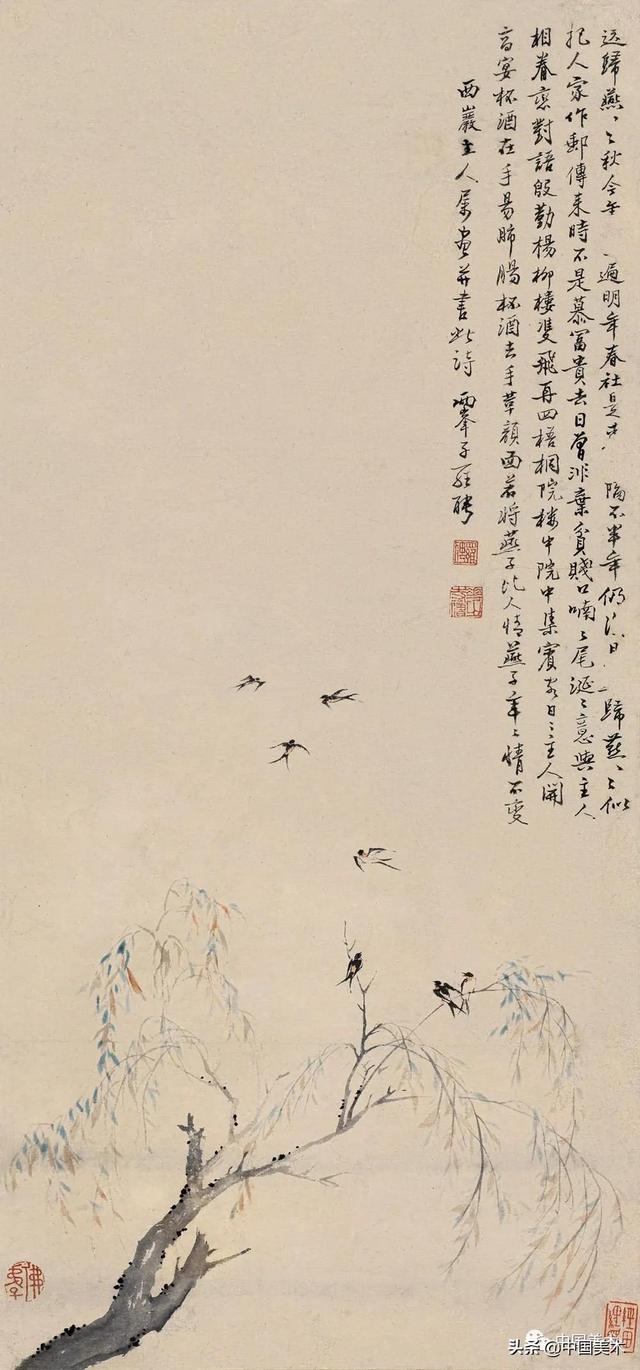 送歸燕〻〻秋今年 一遍明年春社是 隔不半年仍 日 歸燕〻〻似
把人家作郵傳來時不是慕富貴去日曾非棄貧賤口喃〻尾涎〻意與主人
相眷戀對語殷勤楊柳樓雙飛再四梧桐院樓中院中集賓客日〻主人開
高宴杯酒在手易肺腸杯酒去手革顏面若將燕子比人情燕子年〻情不變
西巖主人屬畫并書此詩 兩峯子羅聘
头条@中国美术
中国美术